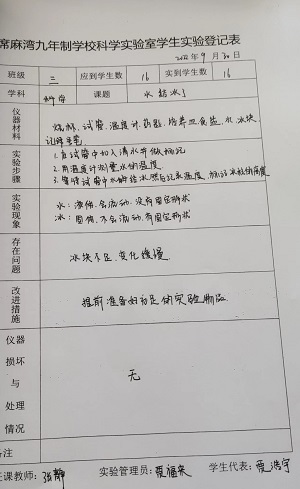 席麻湾九年制学校科学实验室学生实验登记表
年 9 月 30 日
班级 三 应到学生数 16 实到学生数 16
学科 科学 课题 水结冰了
仪器材料 烧杯、试管、温度计、药匙、培养皿、食盐、水、冰块
实验步骤 1. 在试管中加入清水并做标记
2. 用温度计测量水的温度
3. 试管中水
实验现象 水:液体、会流动、没有固定形状
冰:固体、不会流动、有固定形状
存在问题 冰块不足,变化缓慢
改进措施 提前准备好充足的实验物品
仪器损坏与处理情况 无
备注
任课教师: 张静 实验管理员: 贾福荣 学生代表: 贾浩宇